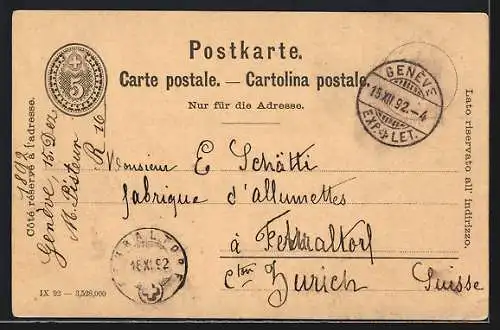 Postkarte.
Carte postale. — Cartolina postale.
Nur für die Adresse.
5
GENÈVE
15 XII 92 - 4
EXP. LET.
Côté réservé à l'adresse.
Lato riservato all' indirizzo.
Genève, 15 Dez 1892
M. Pisteur R 16
Monsieur E Schätti
fabrique d'allumettes
à Fehraltorf
Cton Zurich Suisse
FEHRALTORF
16 XII 92
IX 92 — 3,528,000